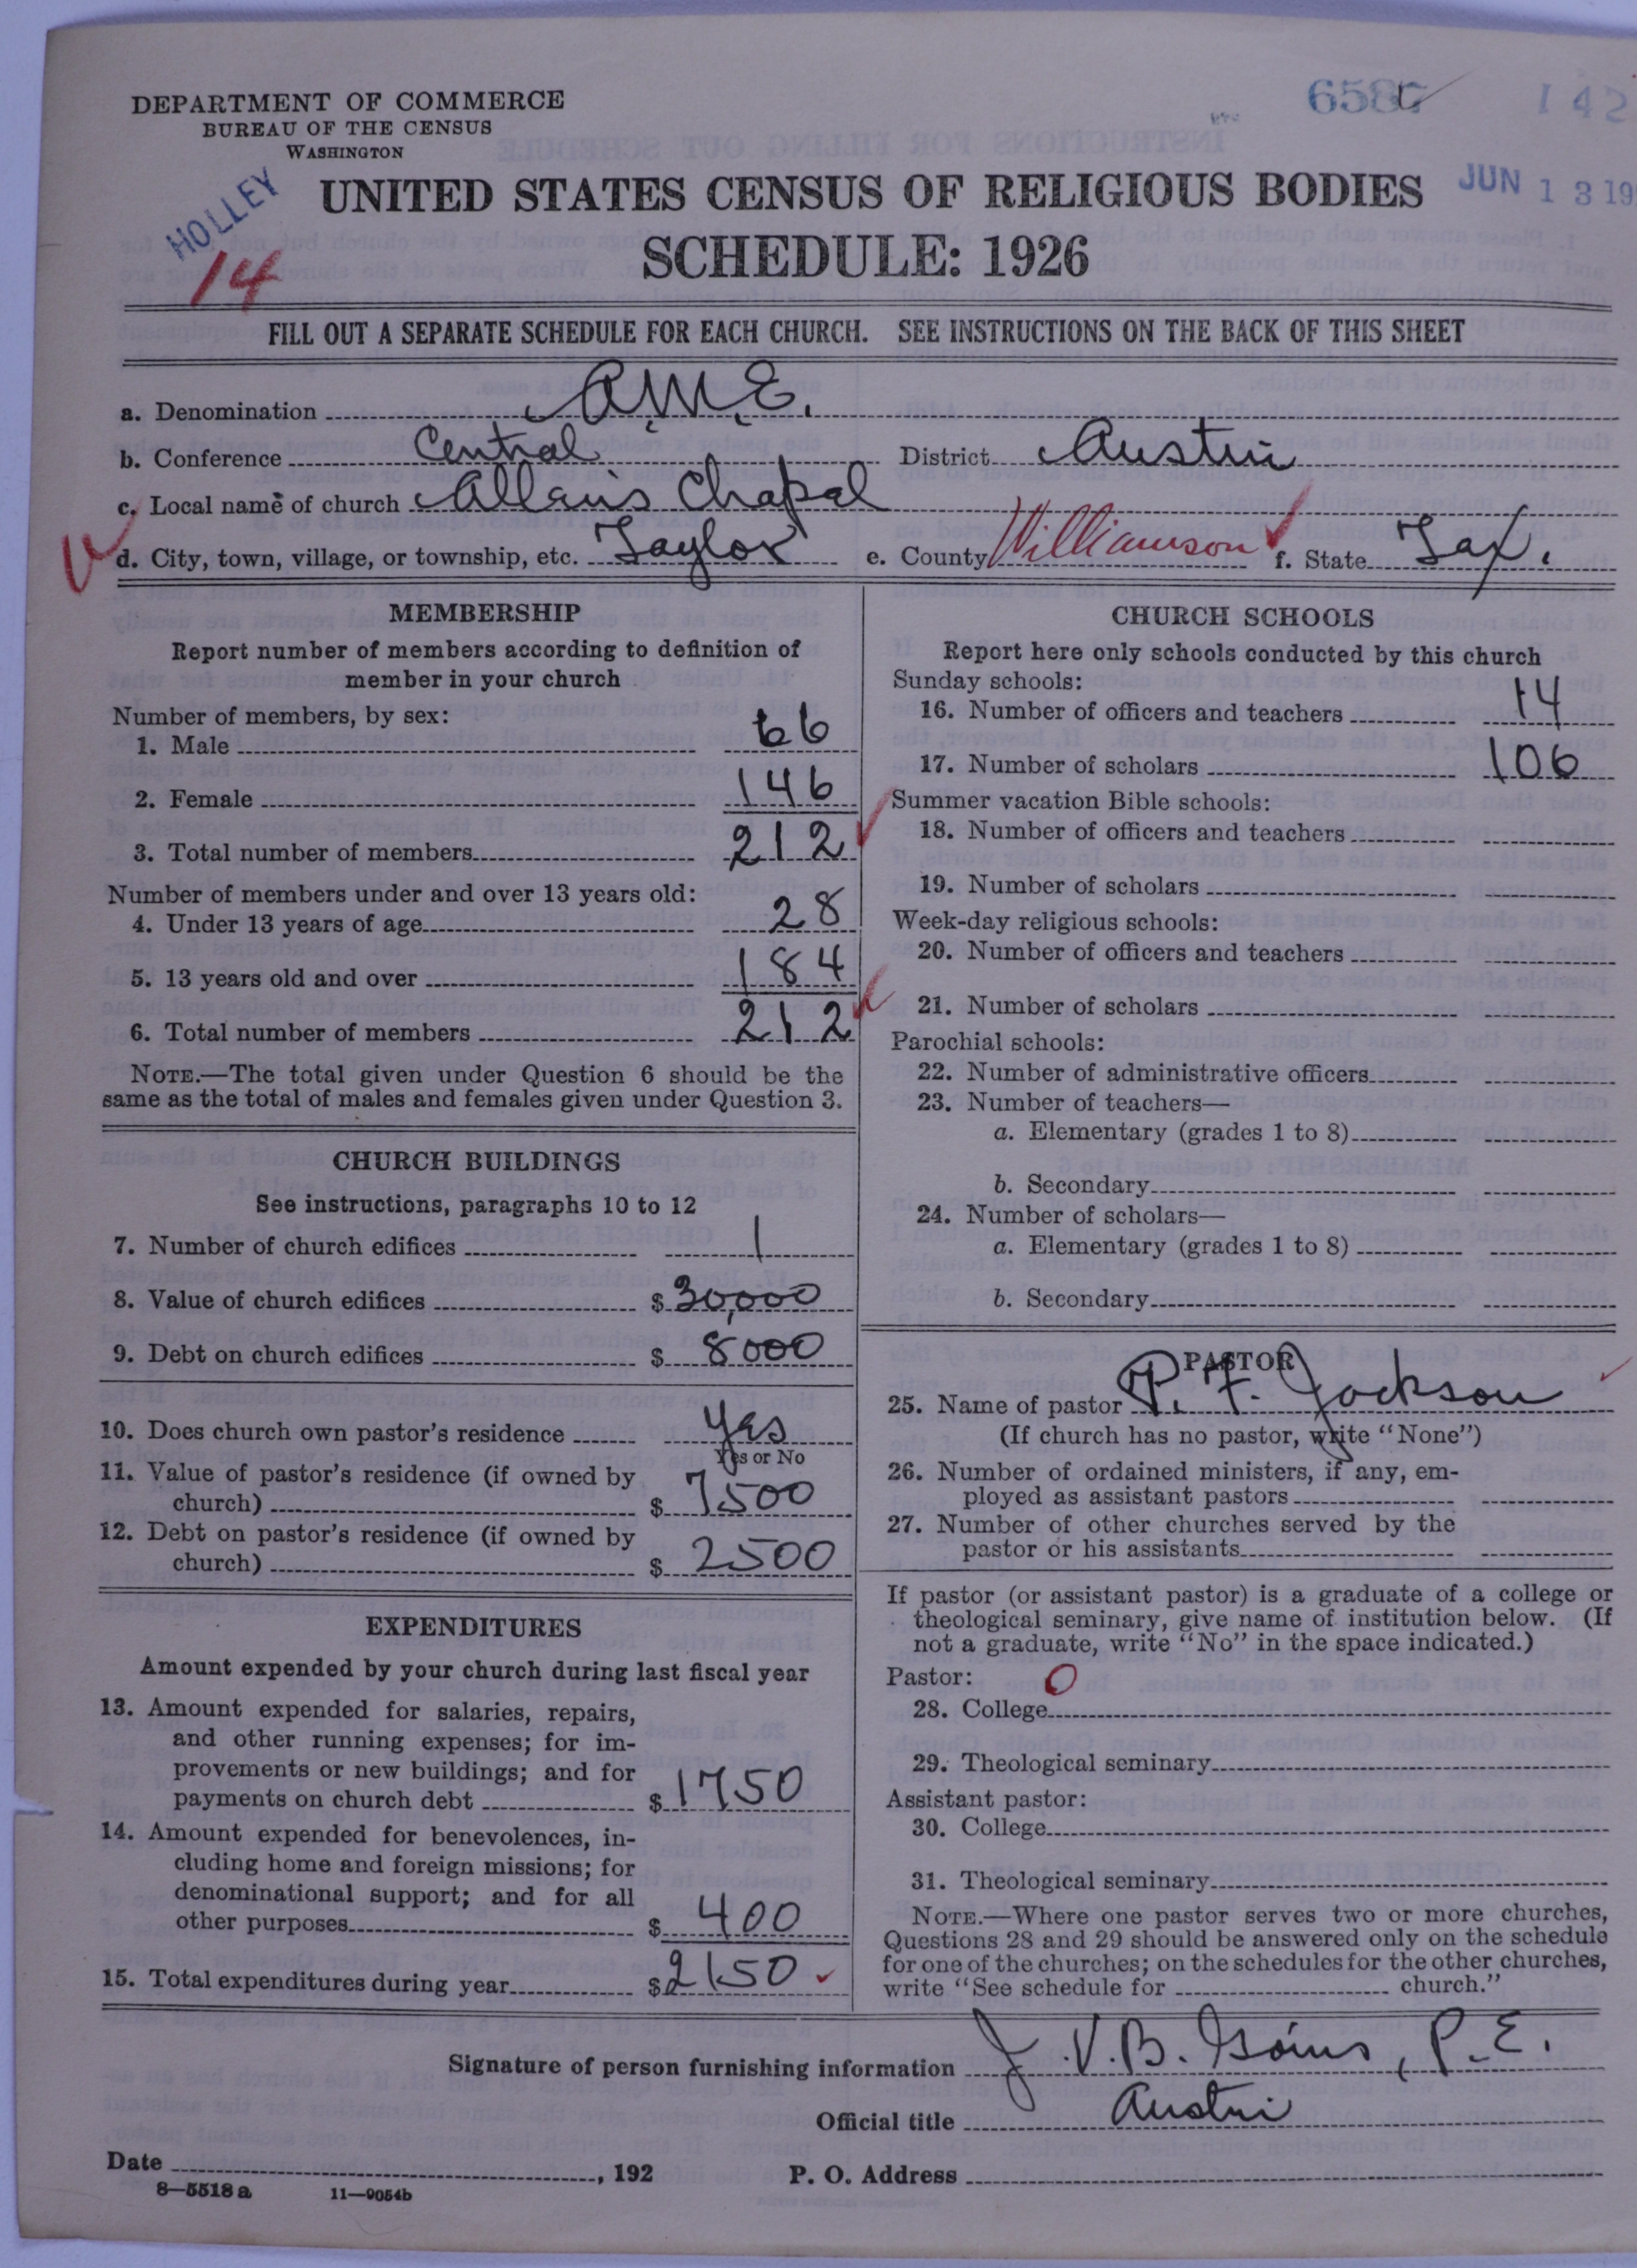 DEPARTMENT OF COMMERCE
BUREAU OF THE CENSUS
WASHINGTON
HOLLEY
14
142
JUN 13 19
UNITED STATES CENSUS OF RELIGIOUS BODIES
SCHEDULE: 1926
FILL OUT A SEPARATE SCHEDULE FOR EACH CHURCH. SEE INSTRUCTIONS ON THE BACK OF THIS SHEET
a. Denomination A.M.E.
b. Conference Central District Austin
c. Local name of church Allens Chapel
d. City, town, village, or township, etc. Taylor e. County Williamson f. State Tex.
MEMBERSHIP
Report number of members according to definition of
member in your church
Number of members, by sex:
1. Male 66
2. Female 146
3. Total number of members 212
Number of members under and over 13 years old:
4. Under 13 years of age 28
5. 13 years old and over 184
6. Total number of members 212
NOTE.—The total given under Question 6 should be the
same as the total of males and females given under Question 3.
CHURCH BUILDINGS
See instructions, paragraphs 10 to 12
7. Number of church edifices 1
8. Value of church edifices $ 30,000
9. Debt on church edifices $ 8000
10. Does church own pastor's residence yes
Yes or No
11. Value of pastor's residence (if owned by
church) $ 7500
12. Debt on pastor's residence (if owned by
church) $ 2500
EXPENDITURES
Amount expended by your church during last fiscal year
13. Amount expended for salaries, repairs,
and other running expenses; for im-
provements or new buildings; and for
payments on church debt $ 1750
14. Amount expended for benevolences, in-
cluding home and foreign missions; for
denominational support; and for all
other purposes $ 400
15. Total expenditures during year $ 2150
CHURCH SCHOOLS
Report here only schools conducted by this church
Sunday schools:
16. Number of officers and teachers 14
17. Number of scholars 106
Summer vacation Bible schools:
18. Number of officers and teachers
19. Number of scholars
Week-day religious schools:
20. Number of officers and teachers
21. Number of scholars
Parochial schools:
22. Number of administrative officers
23. Number of teachers—
a. Elementary (grades 1 to 8)
b. Secondary
24. Number of scholars—
a. Elementary (grades 1 to 8)
b. Secondary
PASTOR
25. Name of pastor P. F. Jackson
(If church has no pastor, write "None")
26. Number of ordained ministers, if any, em-
ployed as assistant pastors
27. Number of other churches served by the
pastor or his assistants
If pastor (or assistant pastor) is a graduate of a college or
theological seminary, give name of institution below. (If
not a graduate, write "No" in the space indicated.)
Pastor: 0
28. College
29. Theological seminary
Assistant pastor:
30. College
31. Theological seminary
NOTE.—Where one pastor serves two or more churches,
Questions 28 and 29 should be answered only on the schedule
for one of the churches; on the schedules for the other churches,
write "See schedule for church."
Signature of person furnishing information J. V. B. Goins, P.E.
Official title Austin
Date , 192 P. O. Address
8—5518 a 11—9054b